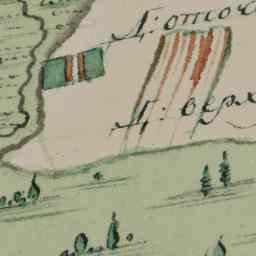 Д: отсо
Д: верх